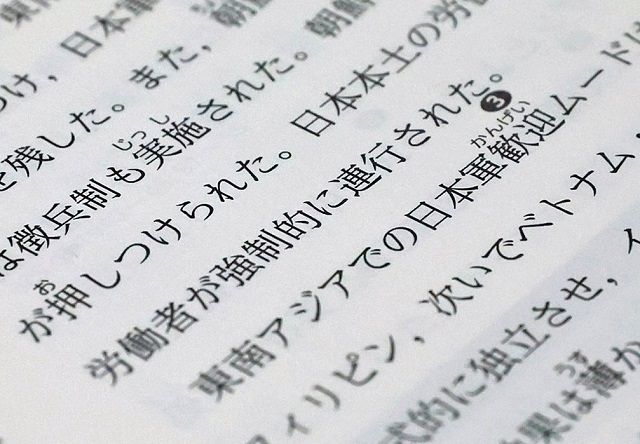 け，日本軍
を残した。また，朝
は徴兵制も実施された。朝鮮
が押しつけられた。日本本土の労
労働者が強制的に連行された。❸
東南アジアでの日本軍歓迎ムードは
フィリピン，次いでベトナム，
式的に独立させ，イ
果は薄か